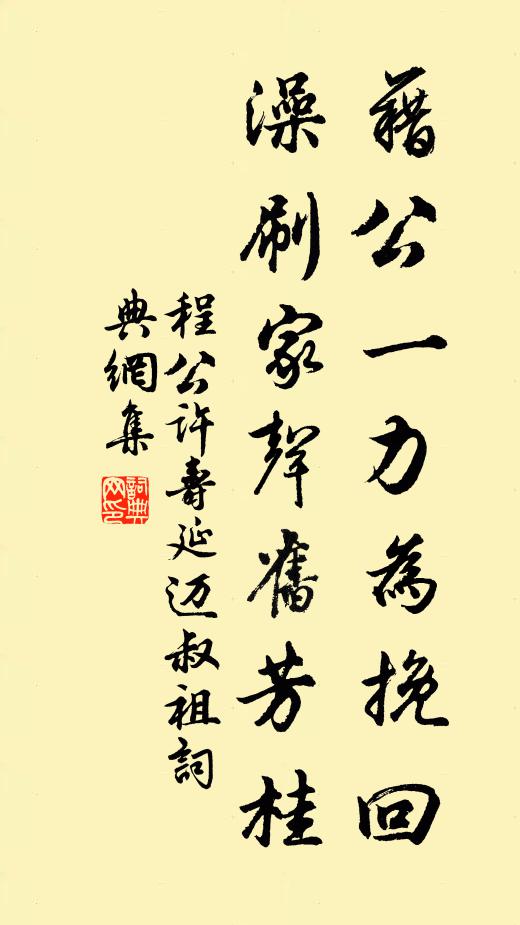 藉公一力為挽回
澡刷家聲舊芳桂
程公許壽延迈叔祖詞
典網集
詞典網印